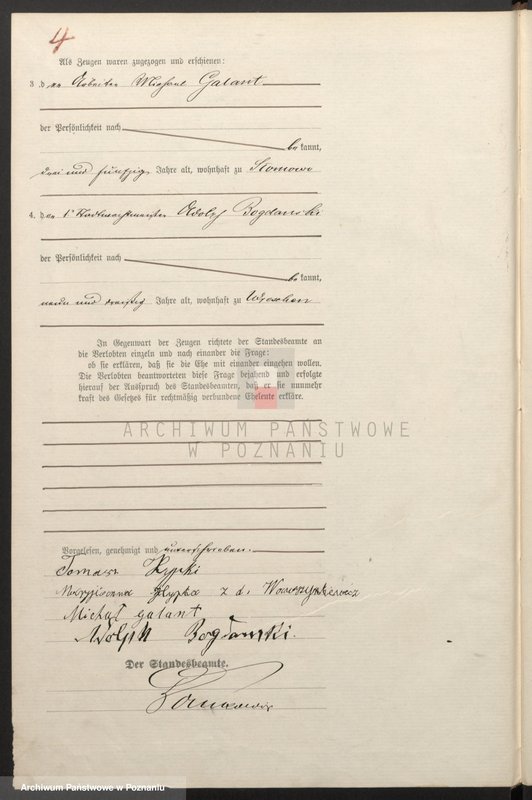 4
Als Zeugen waren zugezogen und erschienen:
3. der Arbeiter Michael Galant
der Persönlichkeit nach
be kannt,
drei und fünfzig Jahre alt, wohnhaft zu
4. der Adolf Bogdanski
der Persönlichkeit nach
be kannt,
neun und dreißig Jahre alt, wohnhaft zu Wreschen
In Gegenwart der Zeugen richtete der Standesbeamte an
die Verlobten einzeln und nach einander die Frage:
ob sie erklären, daß sie die Ehe mit einander eingehen wollen.
Die Verlobten beantworteten diese Frage bejahend und erfolgte
hierauf der Ausspruch des Standesbeamten, daß er sie nunmehr
kraft des Gesetzes für rechtmäßig verbundene Eheleute erkläre.
ARCHIWUM PAŃSTWOWE
W POZNANIU
Vorgelesen, genehmigt und unterschrieben.
Tomasz
z d.
Michał galant
Adolph Bogdanski.
Der Standesbeamte.
Archiwum Państwowe w Poznaniu